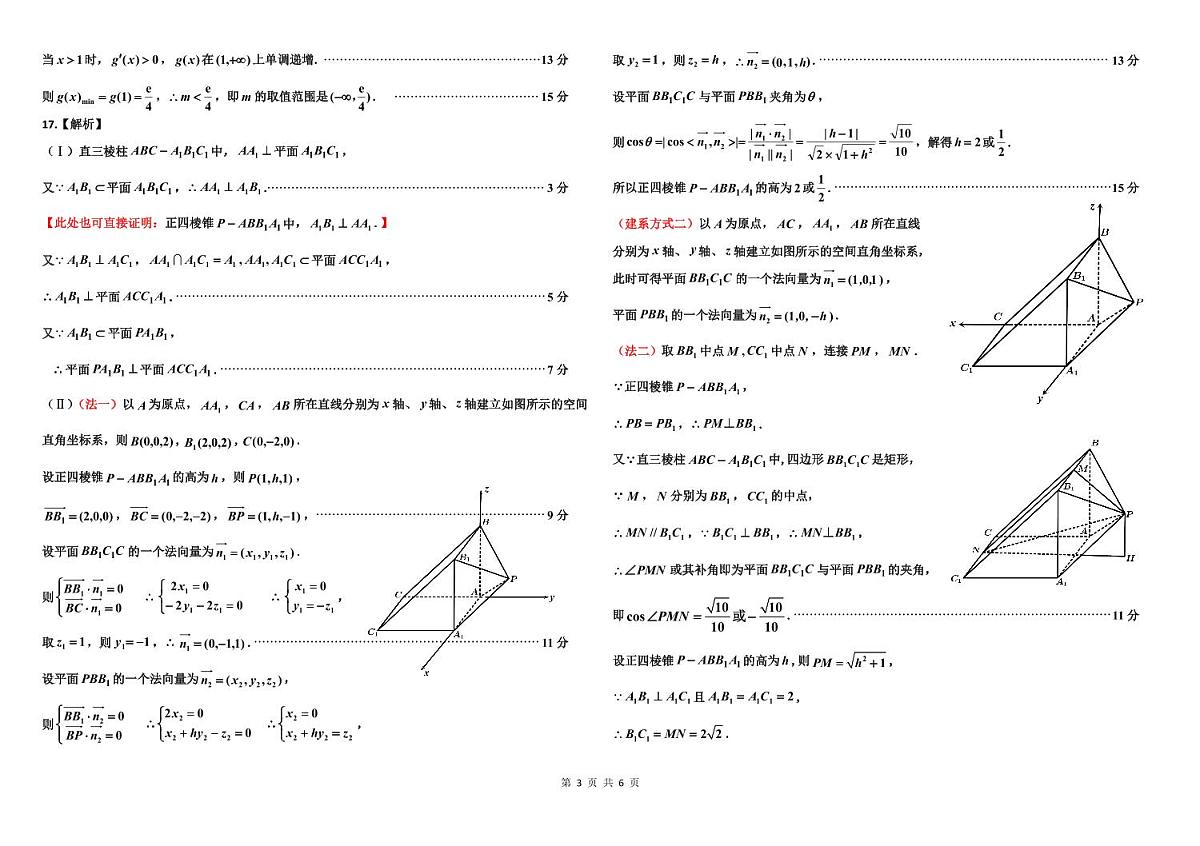 当 x > 1 时，g′(x) > 0，g(x) 在 (1,+∞) 上单调递增. ……………………13 分
则 g(x)min = g(1) = e/4，∴ m < e/4，即 m 的取值范围是 (−∞, e/4). ……………………15 分
17.【解析】
（Ⅰ）直三棱柱 ABC − A₁B₁C₁ 中，AA₁ ⊥ 平面 A₁B₁C₁，
又∵ A₁B₁ ⊂ 平面 A₁B₁C₁，∴ AA₁ ⊥ A₁B₁. ……………………3 分
【此处也可直接证明：正四棱锥 P − ABB₁A₁ 中，A₁B₁ ⊥ AA₁.】
又∵ A₁B₁ ⊥ A₁C₁，AA₁ ∩ A₁C₁ = A₁, AA₁, A₁C₁ ⊂ 平面 ACC₁A₁，
∴ A₁B₁ ⊥ 平面 ACC₁A₁. ……………………5 分
又∵ A₁B₁ ⊂ 平面 PA₁B₁，
∴ 平面 PA₁B₁ ⊥ 平面 ACC₁A₁. ……………………7 分
（Ⅱ）（法一）以 A 为原点，AA₁，CA，AB 所在直线分别为 x 轴、y 轴、z 轴建立如图所示的空间
直角坐标系，则 B(0,0,2)，B₁(2,0,2)，C(0,−2,0).
设正四棱锥 P − ABB₁A₁ 的高为 h，则 P(1, h,1)，
BB₁→ = (2,0,0)，BC→ = (0,−2,−2)，BP→ = (1, h,−1)，……………………9 分
设平面 BB₁C₁C 的一个法向量为 n₁→ = (x₁, y₁, z₁).
则 { BB₁→ · n₁→ = 0 BC→ · n₁→ = 0 ∴ { 2x₁ = 0 −2y₁ − 2z₁ = 0 ∴ { x₁ = 0 y₁ = −z₁ ，
取 z₁ = 1，则 y₁ = −1，∴ n₁→ = (0,−1,1). ……………………11 分
设平面 PBB₁ 的一个法向量为 n₂→ = (x₂, y₂, z₂)，
则 { BB₁→ · n₂→ = 0 BP→ · n₂→ = 0 ∴ { 2x₂ = 0 x₂ + hy₂ − z₂ = 0 ∴ { x₂ = 0 x₂ + hy₂ = z₂ ，
z
B
B₁
P
C
A
y
C₁
A₁
x
取 y₂ = 1，则 z₂ = h，∴ n₂→ = (0,1, h). ……………………13 分
设平面 BB₁C₁C 与平面 PBB₁ 夹角为 θ，
则 cos θ =| cos < n₁→, n₂→ >|= | n₁→ · n₂→ | / | n₁→ || n₂→ | = | h −1| / √2 × √(1 + h²) = √10/10，解得 h = 2 或 1/2.
所以正四棱锥 P − ABB₁A₁ 的高为 2 或 1/2. ……………………15 分
（建系方式二）以 A 为原点，AC，AA₁，AB 所在直线
分别为 x 轴、y 轴、z 轴建立如图所示的空间直角坐标系，
此时可得平面 BB₁C₁C 的一个法向量为 n₁→ = (1,0,1)，
平面 PBB₁ 的一个法向量为 n₂→ = (1,0,−h).
z
B
B₁
P
x
C
A
C₁
A₁
y
（法二）取 BB₁ 中点 M , CC₁ 中点 N，连接 PM，MN.
∵ 正四棱锥 P − ABB₁A₁，
∴ PB = PB₁，∴ PM⊥BB₁.
又∵ 直三棱柱 ABC − A₁B₁C₁ 中, 四边形 BB₁C₁C 是矩形，
∵ M，N 分别为 BB₁，CC₁ 的中点，
∴ MN // B₁C₁，∵ B₁C₁ ⊥ BB₁，∴ MN⊥BB₁，
∴ ∠PMN 或其补角即为平面 BB₁C₁C 与平面 PBB₁ 的夹角，
即 cos ∠PMN = √10/10 或 − √10/10. ……………………11 分
设正四棱锥 P − ABB₁A₁ 的高为 h , 则 PM = √(h² + 1)，
∵ A₁B₁ ⊥ A₁C₁ 且 A₁B₁ = A₁C₁ = 2，
∴ B₁C₁ = MN = 2√2.
B
M
B₁
P
C
A
N
H
C₁
A₁
第 3 页 共 6 页